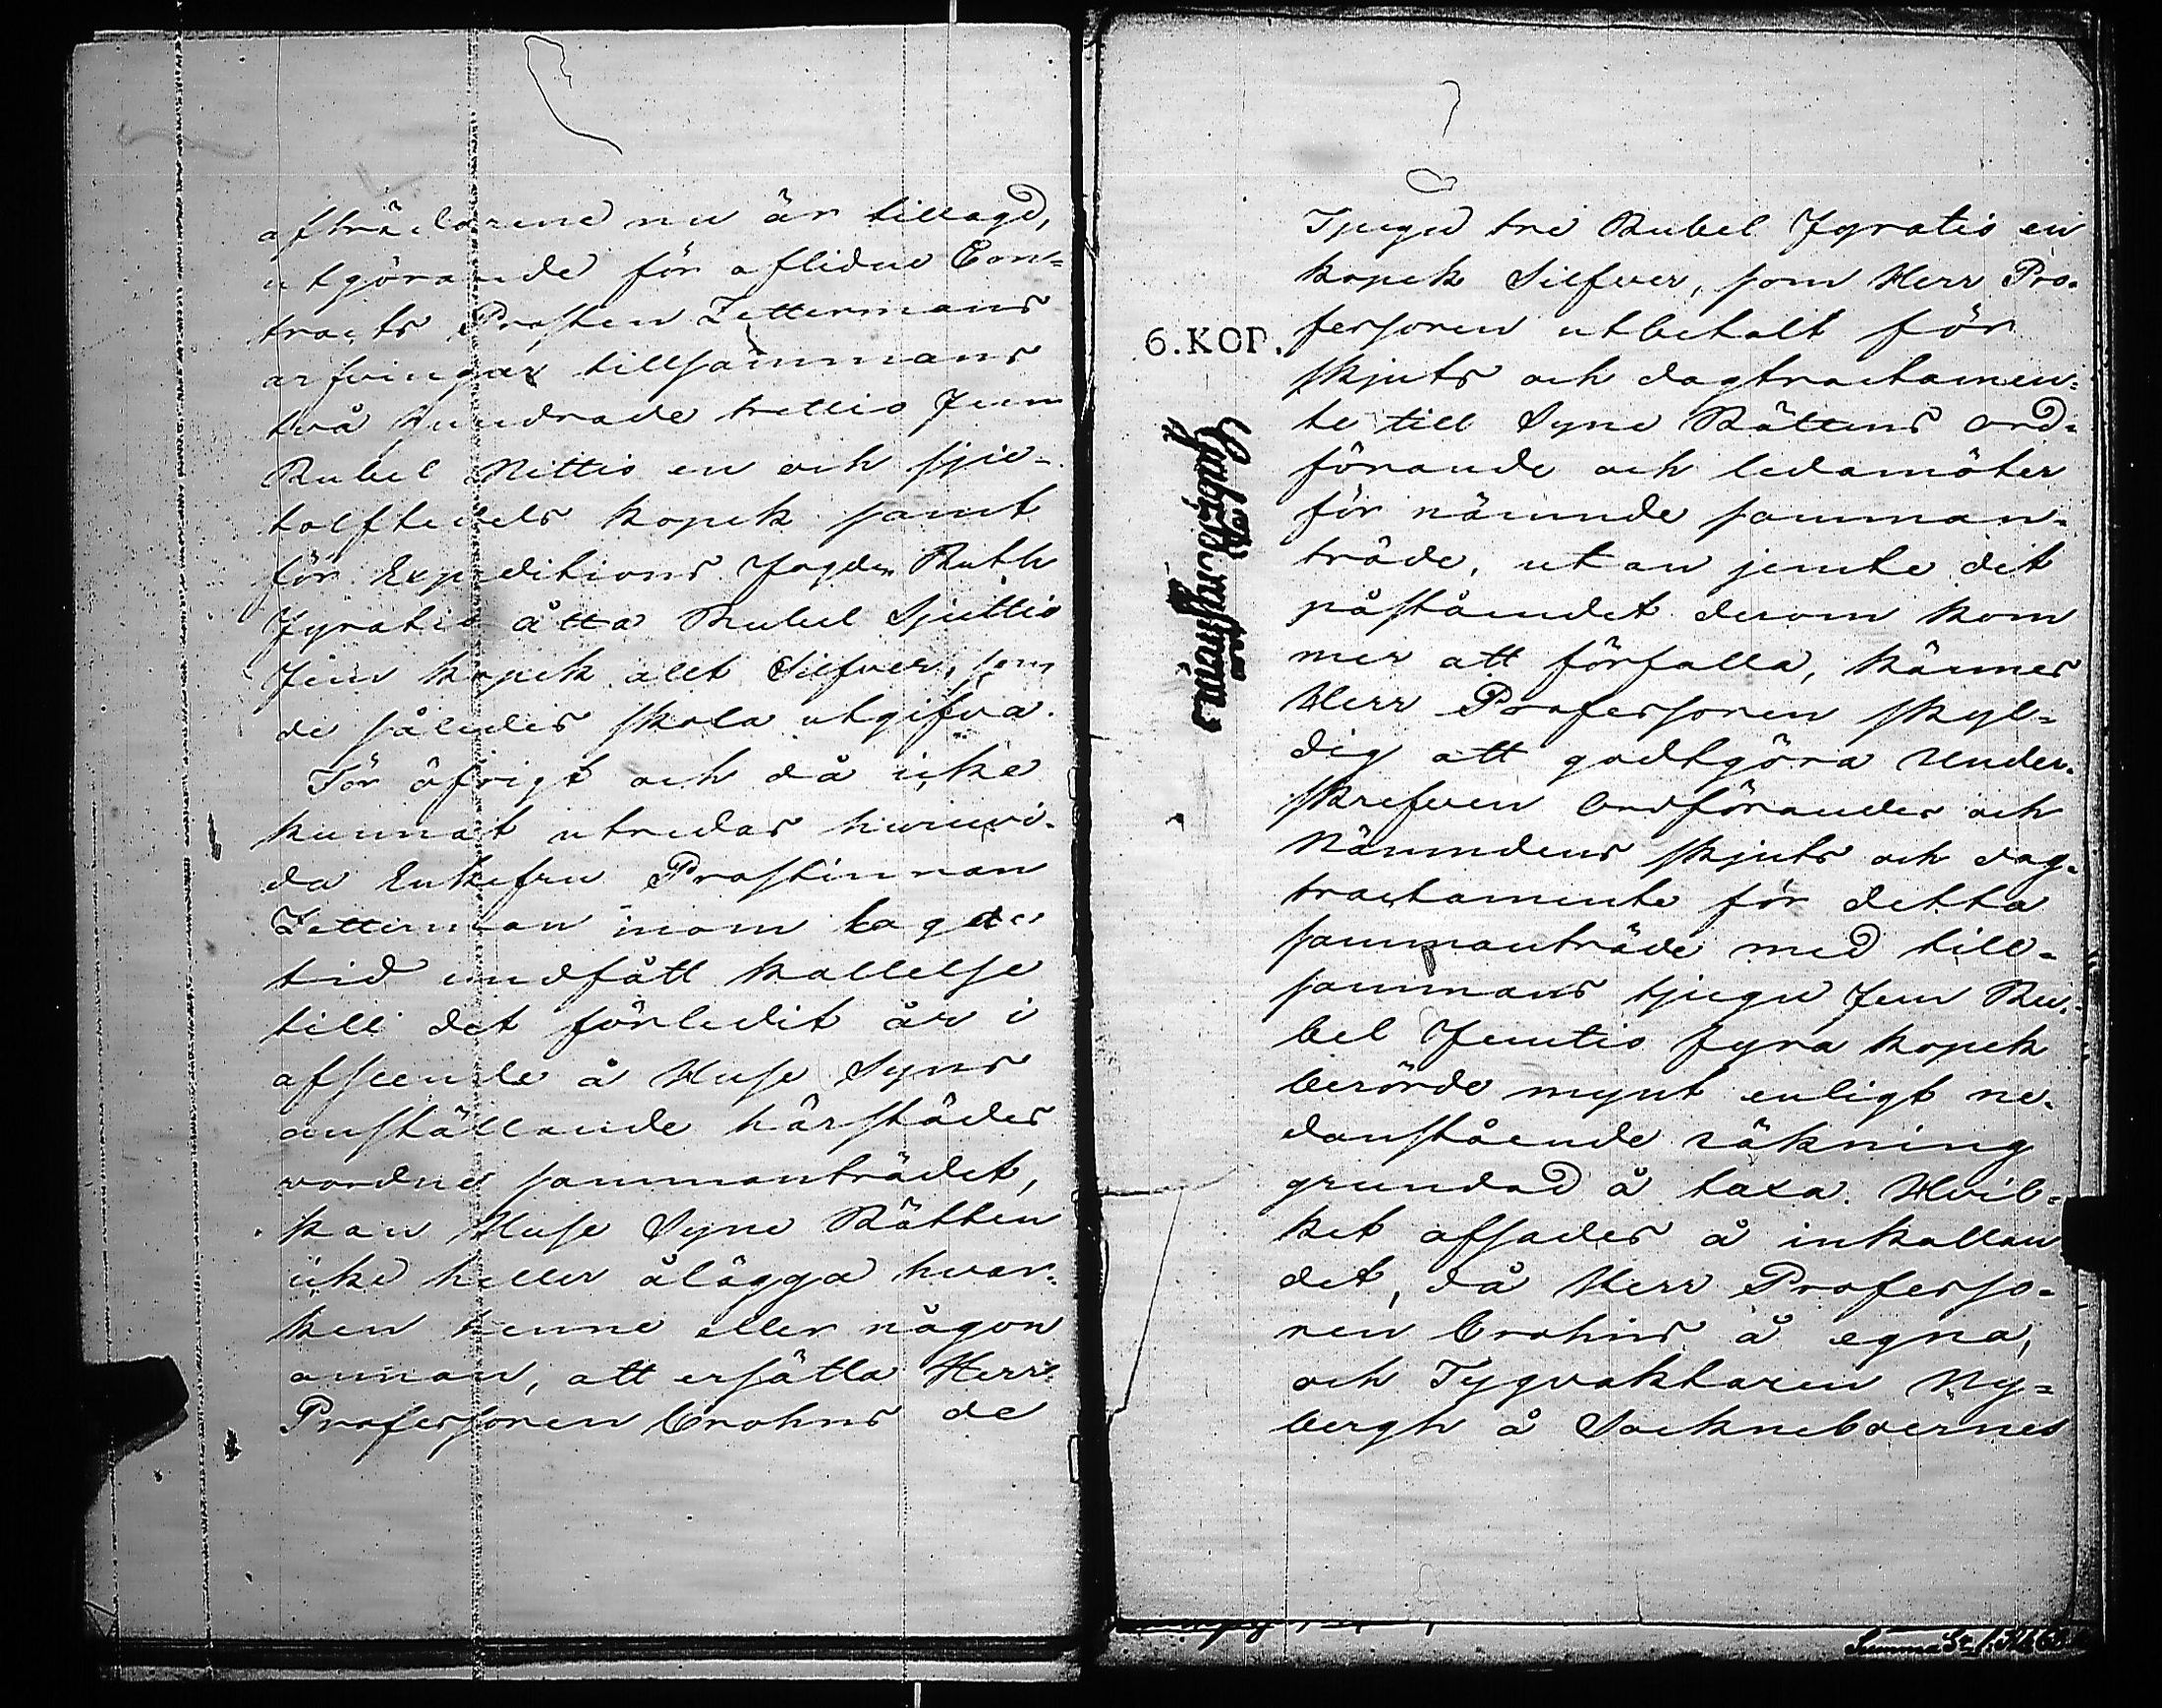 afträdarene nu är tillagd,
utgörande för aflidne Con-
tracts Prosten Zettermans
arfvingar tillsammans
två Hundrade trettio fem
Rubel Nittio en och sju-
tolftedels kopek samt
för Expeditions fogden Ruth
fyratio åtta Rubel Sjuttio
fem kopek allt Silfver, som
de således skola utgifva.
För öfrigt och då icke
kunnat utredas huruvi-
da Enkefru Prostinnan
Zetterman inom laga
tid undfått kallelse
till det förledit år i
afseende å Huse Syns
anställande härstädes
vordne sammanträdet,
kan Huse Syne Rätten
icke heller ålägga hvar-
ken henne eller någon
annan, att ersätta Herr
Professoren Crohns de
Tjugu tre Rubel fyratio en
kopek Silfver, som Herr Pro-
fessoren utbetalt för
skjuts och dagtractamen-
te till Syne Rättens ord-
förande och ledamöter
för nämnde samman-
träde, utan jemte det
påståendet derom kom
mer att förfalla, kännes
Herr Professoren skyl-
dig att godtgöra Under-
skrefven Ordförandes och
Nämndens skjuts och dag-
tractamente för detta
sammanträde med till-
sammans tjugu fem Ru-
bel femtio fyra kopek
berörde mynt enligt ne-
danstående räkning
grundad å taxa. Hvil-
ket afsades å inkallan
det, då Herr Professo-
ren Crohns å egna,
och Tygvaktaren Ny-
bergh å Sockneboernes
6.KOP.
Summa S:r 1. Rb 68